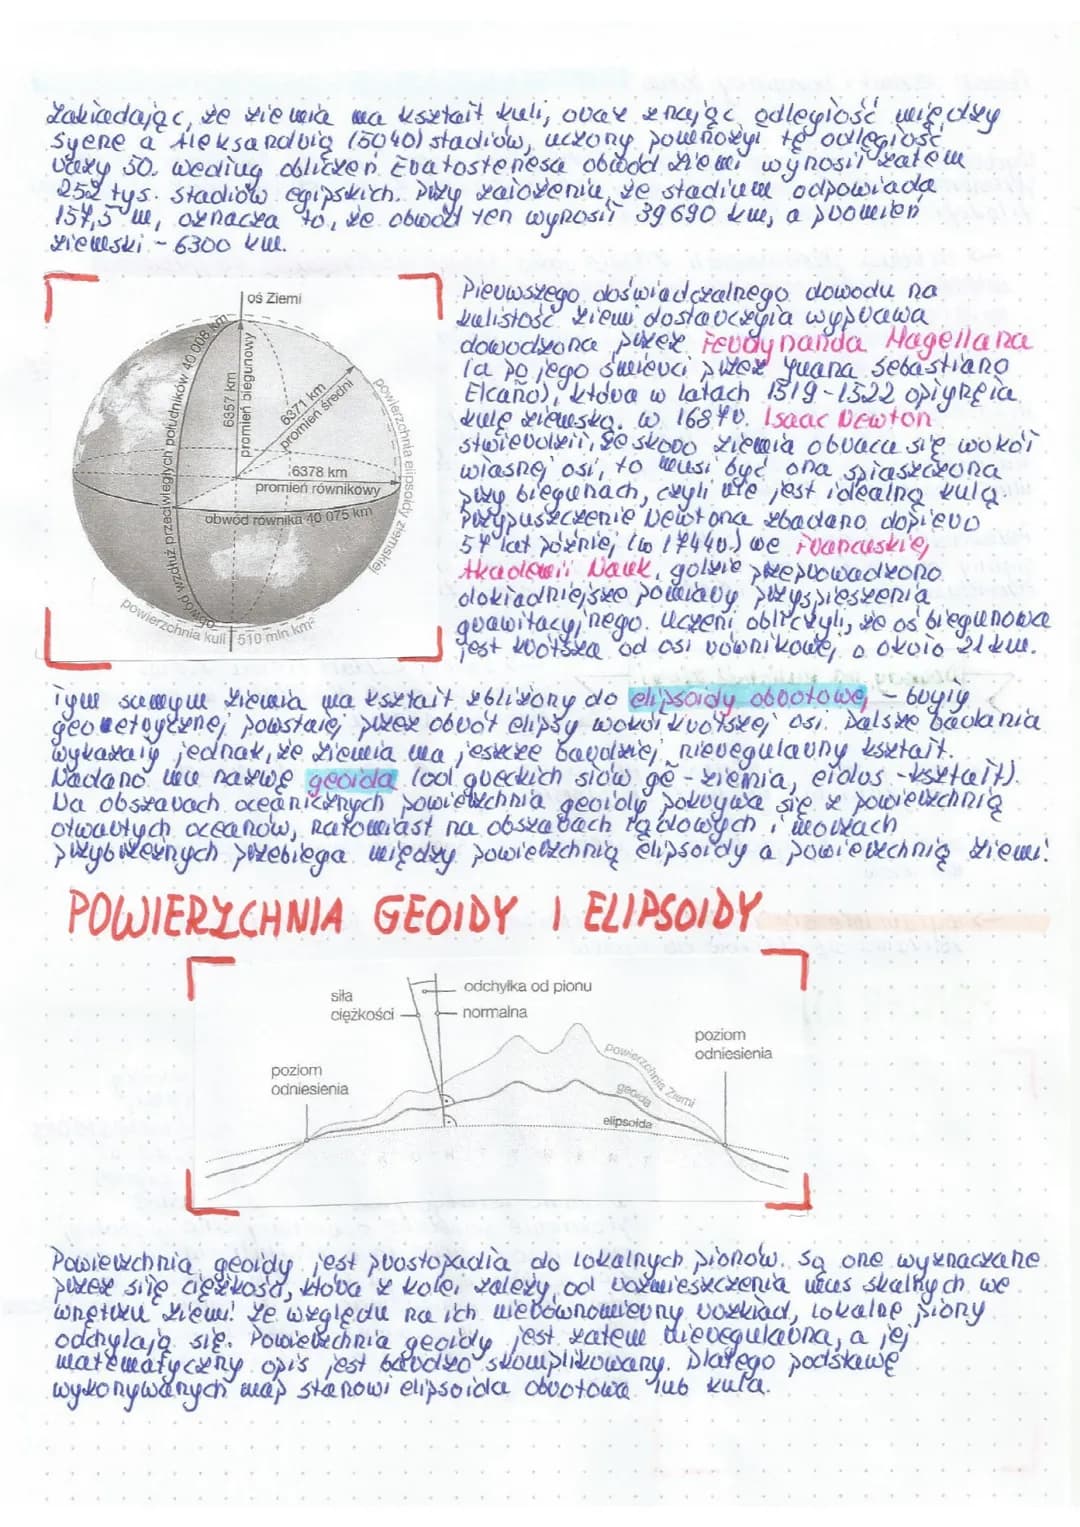 Zakładając, że Ziemia ma kształt kuli, oraz znając odległość między
Syene a Aleksandrią (5040) stadiów, uczony pomnożył tę odległość
razy 50. Według obliczeń Eratostenesa obwód Ziemi wynosił zatem
252 tys. stadiów egipskich. Przy założeniu, że stadium odpowiada
157,5 m, oznacza to, że obwód ten wynosił 39690 km, a promień
ziemski - 6300 km.
oś Ziemi
obwód wzdłuż przeciwległych południków 40 008 km
6357 km
promień biegunowy
6371 km
promień średni
6378 km
promień równikowy
obwód równika 40 075 km
powierzchnia elipsoidy ziemskiej
powierzchnia kuli 510 mln km²
Pierwszego doświadczalnego dowodu na
kulistość Ziemi dostarczyła wyprawa
dowodzona przez Ferdynanda Magellana
(a po jego śmierci przez Juana Sebastiano
Elcaño), która w latach 1519-1522 opłynęła
kulę ziemską. W 1687r. Isaac Newton
stwierdził, że skoro Ziemia obraca się wokół
własnej osi, to musi być ona spłaszczona
przy biegunach, czyli nie jest idealną kulą
Przypuszczenie Newtona zbadano dopiero
57 lat później (w 1744r.) we Francuskiej
Akademii Nauk, gdzie przeprowadzono
dokładniejsze pomiary przyspieszenia
grawitacyjnego. Uczeni obliczyli, że oś biegunowa
jest krótsza od osi równikowej o około 21 km.
Tym samym Ziemia ma kształt zbliżony do elipsoidy obrotowej - bryły
geometrycznej powstałej przez obrót elipsy wokół krótszej osi. Dalsze badania
wykazały jednak, że Ziemia ma jeszcze bardziej nieregularny kształt.
Nadano mu nazwę geoida (od greckich słów gē - ziemia, eidos - kształt).
Na obszarach oceanicznych powierzchnia geoidy pokrywa się z powierzchnią
otwartych oceanów, natomiast na obszarach lądowych i morzach
przybrzeżnych przebiega między powierzchnią elipsoidy a powierzchnią Ziemi.
POWIERZCHNIA GEOIDY I ELIPSOIDY
siła
ciężkości
odchyłka od pionu
normalna
poziom
odniesienia
poziom
odniesienia
powierzchnia Ziemi
geoida
elipsoida
Powierzchnia geoidy jest prostopadła do lokalnych pionów. Są one wyznaczane
przez siłę ciężkości, która z kolei zależy od rozmieszczenia mas skalnych we
wnętrzu Ziemi. Ze względu na ich nierównomierny rozkład, lokalne piony
odchylają się. Powierzchnia geoidy jest zatem nieregularna, a jej
matematyczny opis jest bardzo skomplikowany. Dlatego podstawę
wykonywanych map stanowi elipsoida obrotowa lub kula.